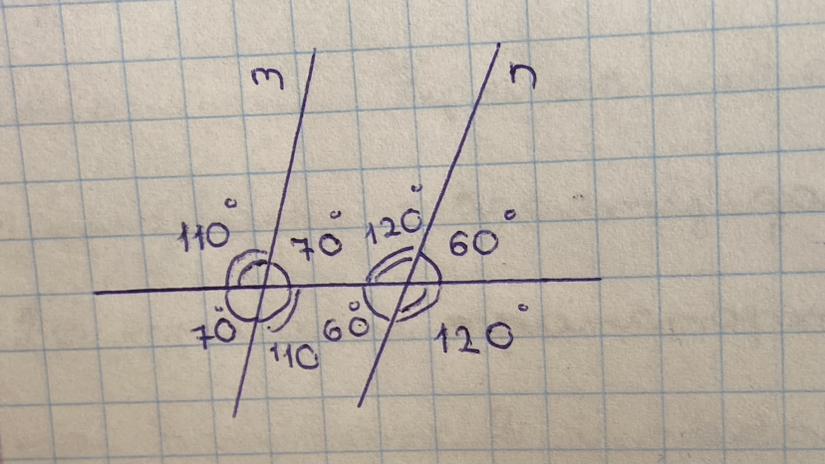 m n
110° 70° 120° 60°
70° 110 60° 120°